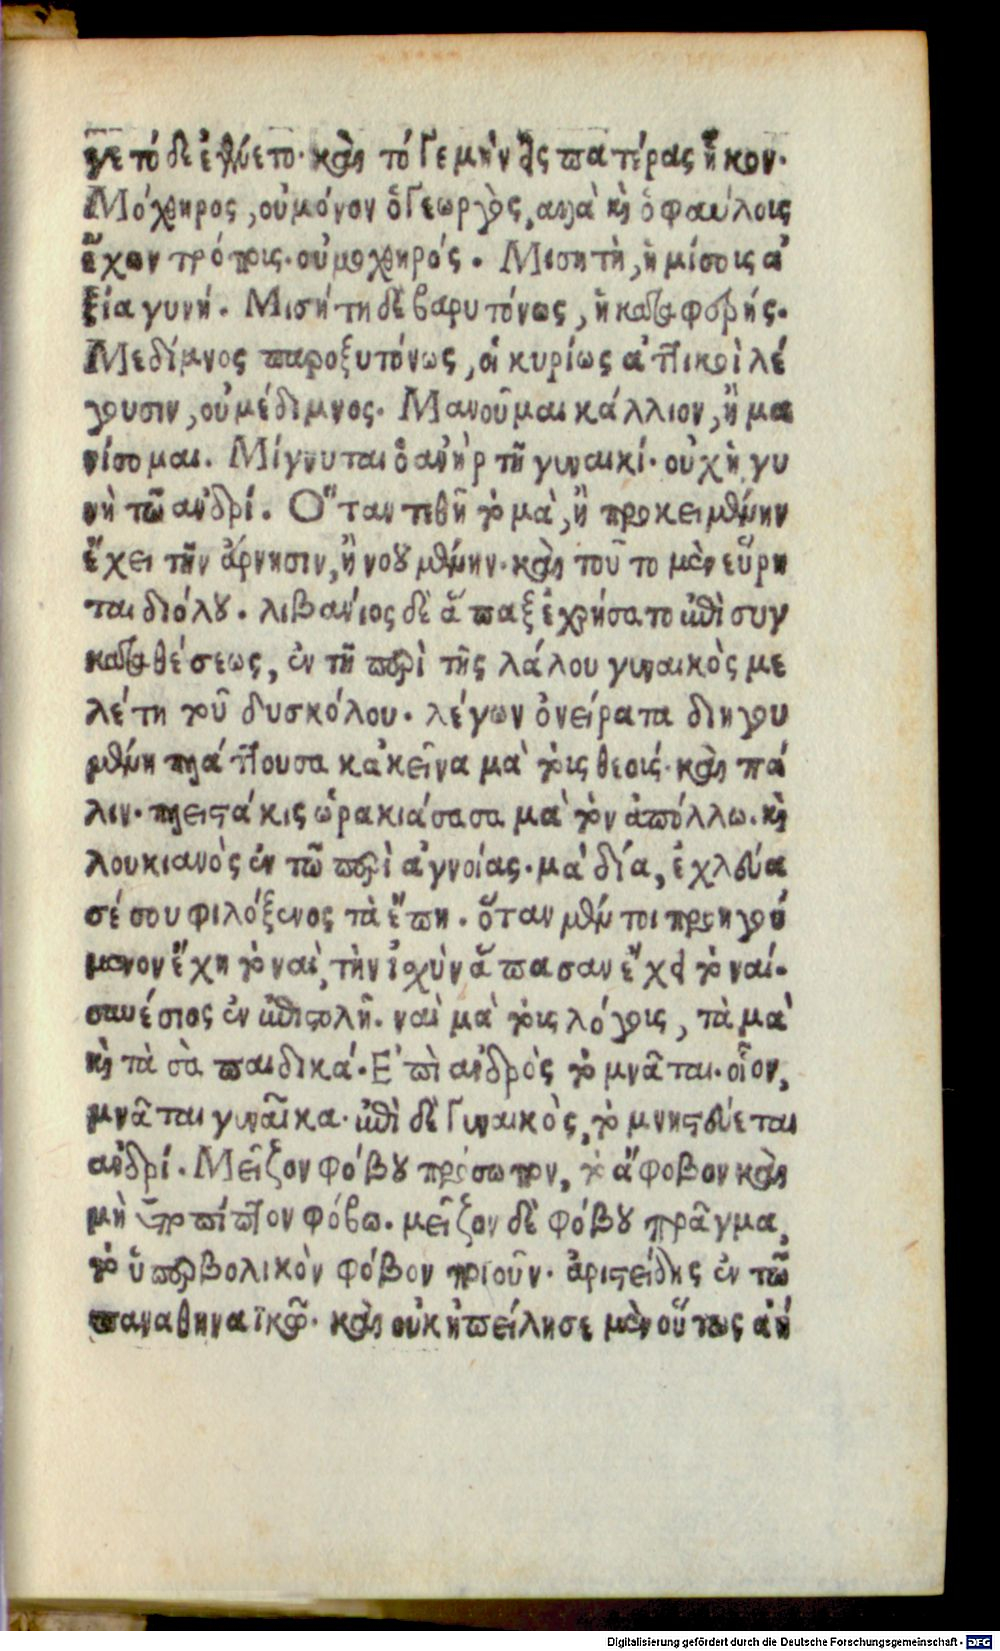 γε τό δε ἐλύετο. καὶ τό γε μὴν ἐς πατέρας ἧκον.
Μόχθηρος, οὐ μόνον ὁ γεωργὸς, ἀλλὰ καὶ ὁ φαύλοις
ἔχων τρόποις. οὐ μοχθηρός. Μισητὴ, ἡ μίσοις ἀ
ξία γυνή. Μισήτη δὲ βαρυτόνως, ἡ καταφορής.
Μεδίμνος παροξυτόνως, οἱ κυρίως ἀττικοὶ λέ
γουσιν, οὐ μέδιμνος. Μανοῦμαι κάλλιον, ἢ μα
νίσομαι. Μίγνυται ὁ ἀνὴρ τῇ γυναικί. οὐχ ἡ γυ
νὴ τῶ ἀνδρί. Ὅταν τιθῆ τὸ μὰ, ἢ προκειμένην
ἔχει τὴν ἄρνησιν, ἢ νοουμένην. καὶ τοῦτο μὲν εὕρη
ται διόλου. λιβανίος δὲ ἅπαξ ἐχρήσατο ἐπὶ συγ
καταθέσεως, ἐν τῇ περὶ τῆς λάλου γυναικὸς με
λέτη τοῦ δυσκόλου. λέγων ὀνείρατα διηγου
μένη πλάττουσα κἀκεῖνα μὰ τοὺς θεούς. καὶ πά
λιν. πλειστάκις ὠρακιάσασα μὰ τὸν ἀπόλλω. καὶ
λουκιανὸς ἐν τῶ περὶ ἀγνοίας. μὰ δία, ἐχλεύα
σέ σου φιλόξενος τὰ ἔπη. ὅταν μέντοι προηγού
μενον ἔχη τὸ ναὶ, τὴν ἰσχὺν ἅπασαν ἔχει τὸ ναί.
συνέσιος ἐν ἐπιστολῆ. ναὶ μὰ τοὺς λόγους, τὰ μὰ
καὶ τὰ σὰ παιδικά. Ἐπὶ ἀνδρὸς τὸ μνᾶται. οἷον,
μνᾶται γυναῖκα. ἐπὶ δὲ γυναικὸς, τὸ μνηστεύεται
ἀνδρί. Μεῖζον φόβου πρόσωπον, τὸ ἄφοβον καὶ
μὴ ὑποπίπτον φόβω. μεῖζον δὲ φόβου πρᾶγμα,
τὸ ὑπερβολικὸν φόβον ποιοῦν. ἀριστείδης ἐν τῶ
παναθηναϊκῶ. καὶ οὐκ ἠπείλησε μὲν οὕτως ἀή
Digitalisierung gefördert durch die Deutsche Forschungsgemeinschaft - DFG